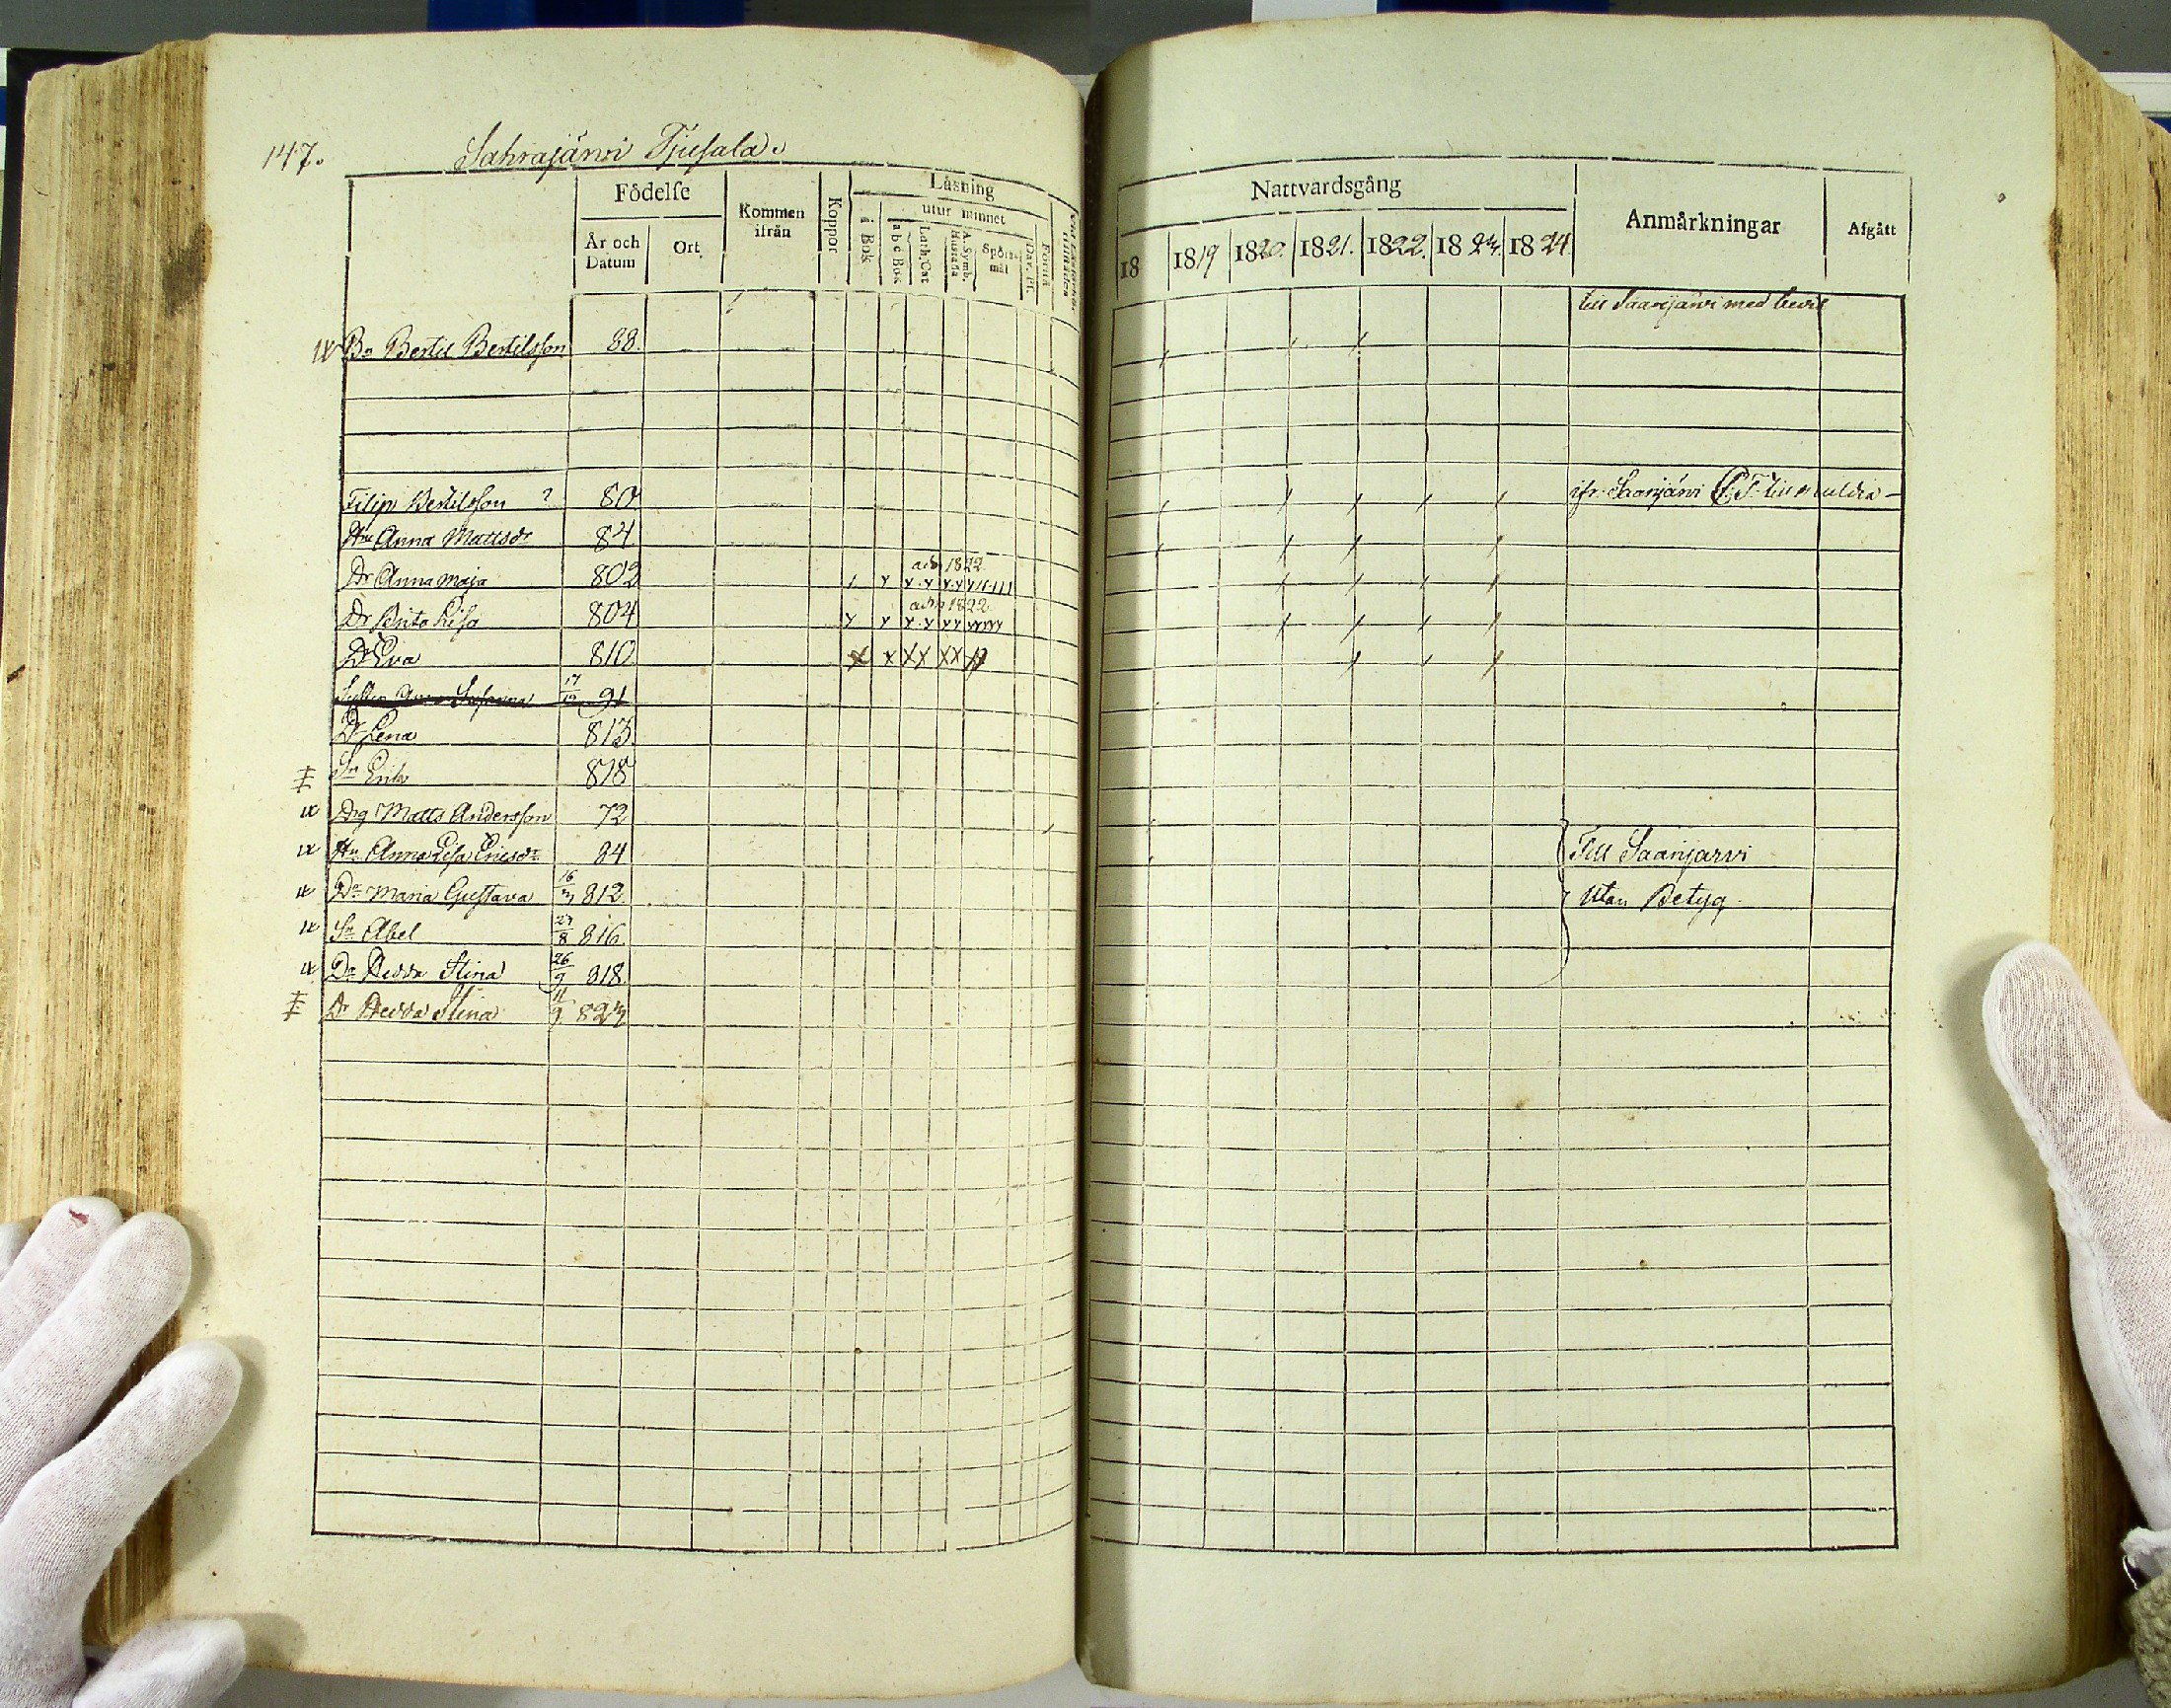 147. Sahrajärwi Tjusala.
Fôdelse
År och Datum
Ort
Kommen ifrån
Koppor
Låsning
i Bok
utur minnet
a b c Bok
Luth. Cat
A. Symb. Hustafla
Spörsmål
Dav. Ps.
Förstå
Nattvardsgång
18
1819
1820.
1821.
1822.
1823.
1824.
Anmårkningar
Afgått
till Saarijärvi med bevis
Bo Bertil Bertilsson 88.
Filip Bertilsson ? 80 ifr. Saarijärvi
Hu Anna Mattsdr 84
Dr Anna Maja 802 adm 1822
Dr Brita Lisa 804 adm 1822
Dr Eva 810
Susanna 17/12 91
Dr Lena 813
Sn Erik 818
Drg Matts Andersson 72
Hu Anna Lisa Ericsdr 84 Till Saarijarvi
Dr Maria Gustava 16/3 812 utan Betyg.
Sn Abel 23/8 816.
Dr Hedda Stina 26/9 818.
Dr Hedda Stina 11/9 823